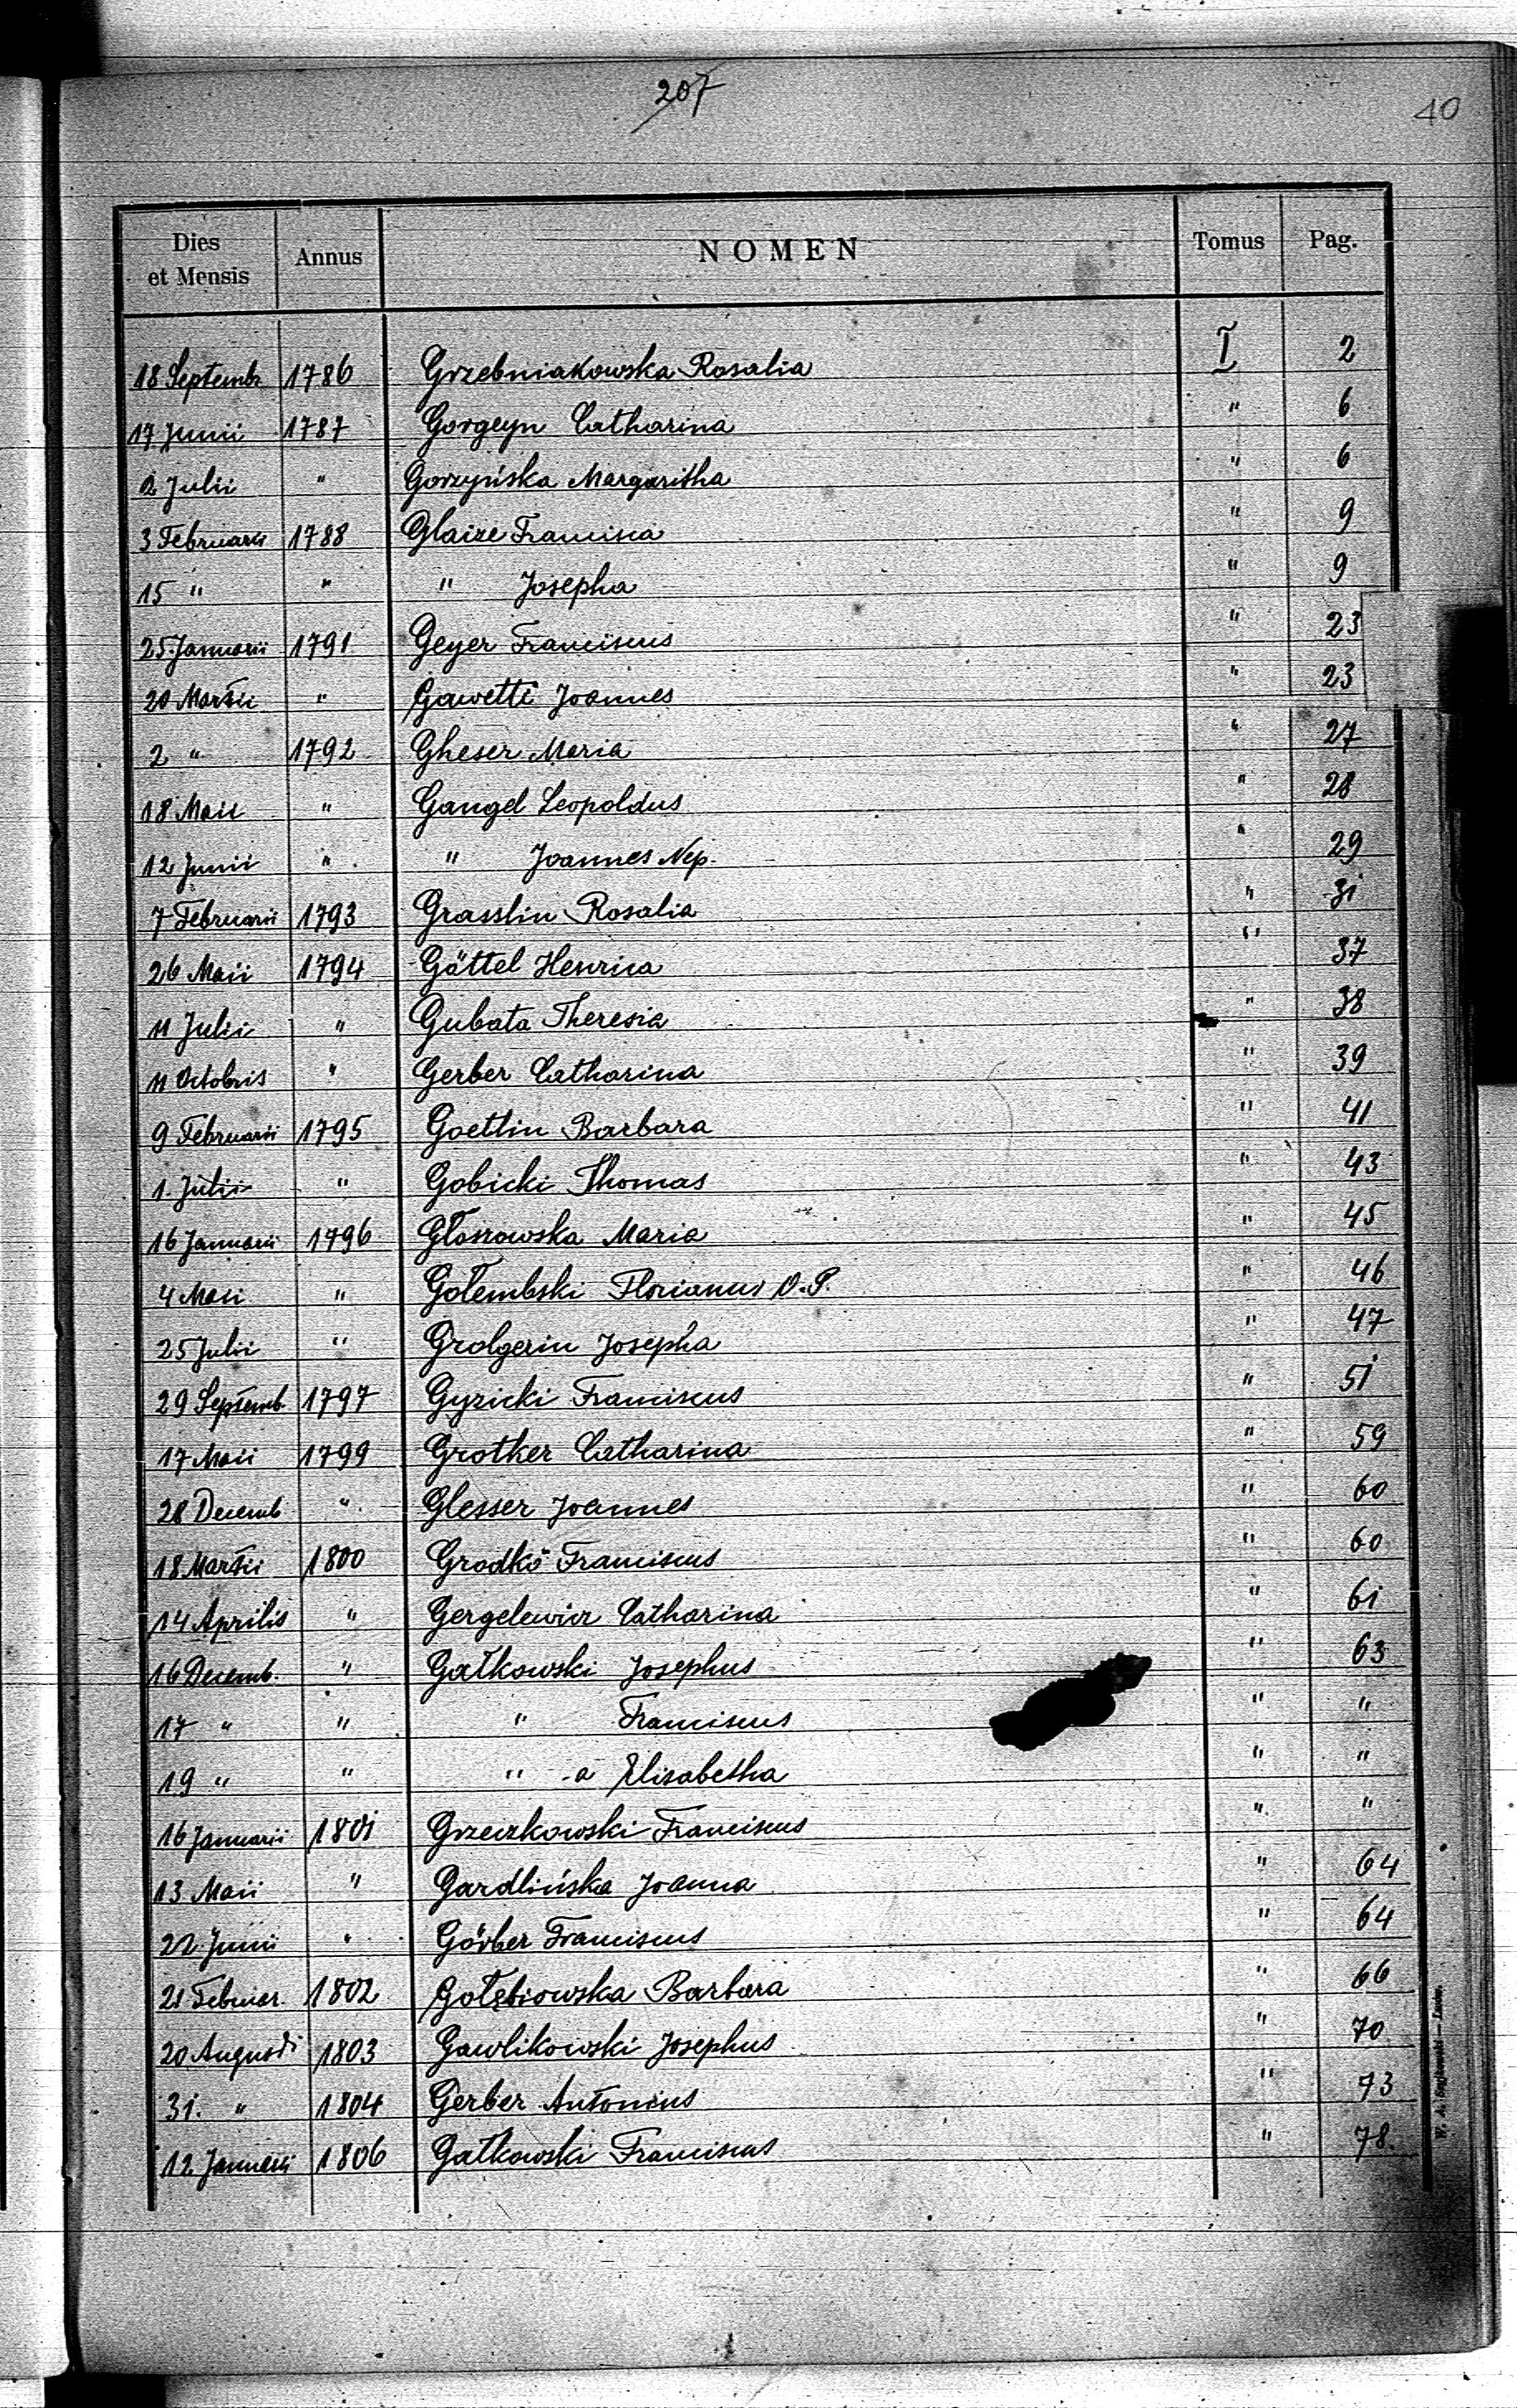 207
40
Dies et Mensis Annus NOMEN Tomus Pag.
18 Septembr 1786 Grzebniakowska Rosalia I 2
17 Junii 1787 Gorgeyn Catharina " 6
2 Julii " Gorzyńska Margaritha " 6
3 Februarii 1788 Glaize Francisca " 9
15 " " " Josepha " 9
25 Januarii 1791 Geyer Franciscus " 23
20 Martii " Gawetti Joannes " 23
2 " 1792 Gheser Maria " 27
18 Maii " Gangel Leopoldus " 28
12 Junii " " Joannes Nep. " 29
7 Februarii 1793 Grasslin Rosalia " 31
26 Maii 1794 Göttel Henrica " 37
11 Julii " Gubata Theresia " 38
11 Octobris " Gerber Catharina " 39
9 Februarii 1795 Goetlin Barbara " 41
1. Julii " Gobicki Thomas " 43
16 Januarii 1796 Głosrowska Maria " 45
4 Maii " Gołembski Florianus O.P. " 46
25 Julii " Grolgerin Josepha " 47
29 Septemb. 1797 Gyzicki Franciscus " 51
17 Maii 1799 Grotker Catharina " 59
28 Decemb " Glesser Joannes " 60
18 Martii 1800 Grodko Franciscus " 60
14 Aprilis " Gergelewicz Catharina " 61
16 Decemb. " Gałkowski Josephus " 63
17 " " " Franciscus " "
19 " " " -a Elisabetha " "
16 Januarii 1801 Grzeczkowski Franciscus " "
13 Maii " Gardlińska Joanna " 64
22 Junii " Görber Franciscus " 64
21 Februar. 1802 Gołębiowska Barbara " 66
20 Augusti 1803 Gawlikowski Josephus " 70
31. " 1804 Gerber Antonius " 73
12 Januarii 1806 Gałkowski Franciscus " 78.